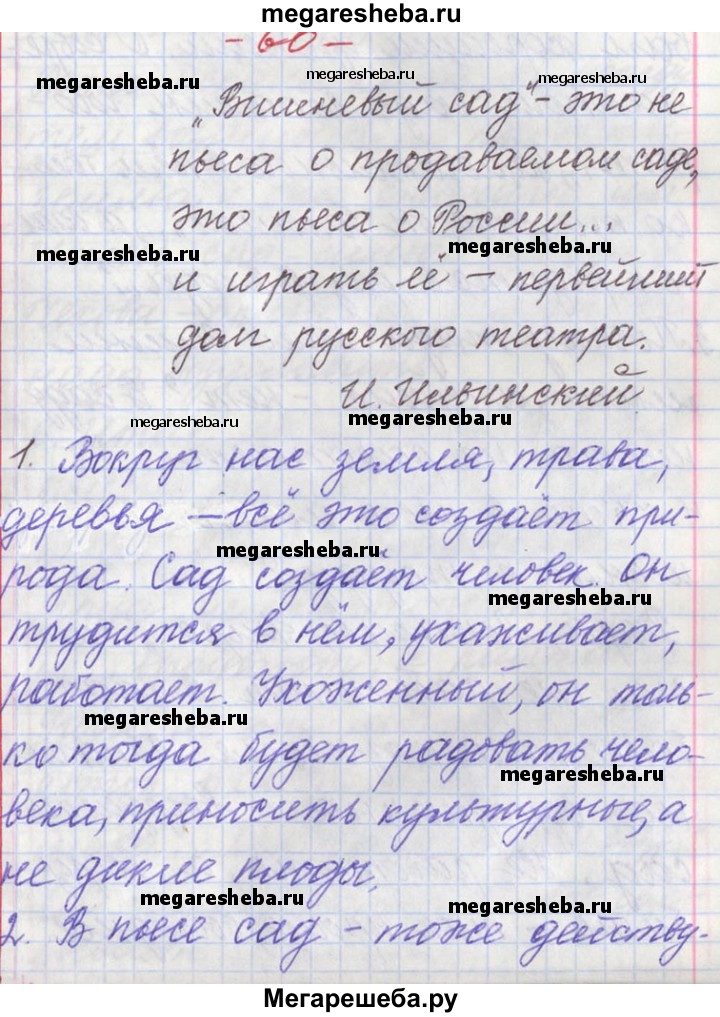 megaresheba.ru
- 60 -
megaresheba.ru
megaresheba.ru
megaresheba.ru
„Вишневый сад" - это не
пьеса о продаваемом саде,
это пьеса о России...
megaresheba.ru
megaresheba.ru
и играть её - первейший
долг русского театра.
И. Ильинский
megaresheba.ru
megaresheba.ru
1. Вокруг нас земля, трава,
деревья - всё это создаёт при-
megaresheba.ru
рода. Сад создаёт человек. Он
megaresheba.ru
трудится в нём, ухаживает,
работает. Ухоженный, он толь-
megaresheba.ru
ко тогда будет радовать чело-
megaresheba.ru
века, приносить культурные, а
не дикие плоды.
megaresheba.ru
megaresheba.ru
2. В пьесе сад - тоже действу-
Мегарешеба.ру